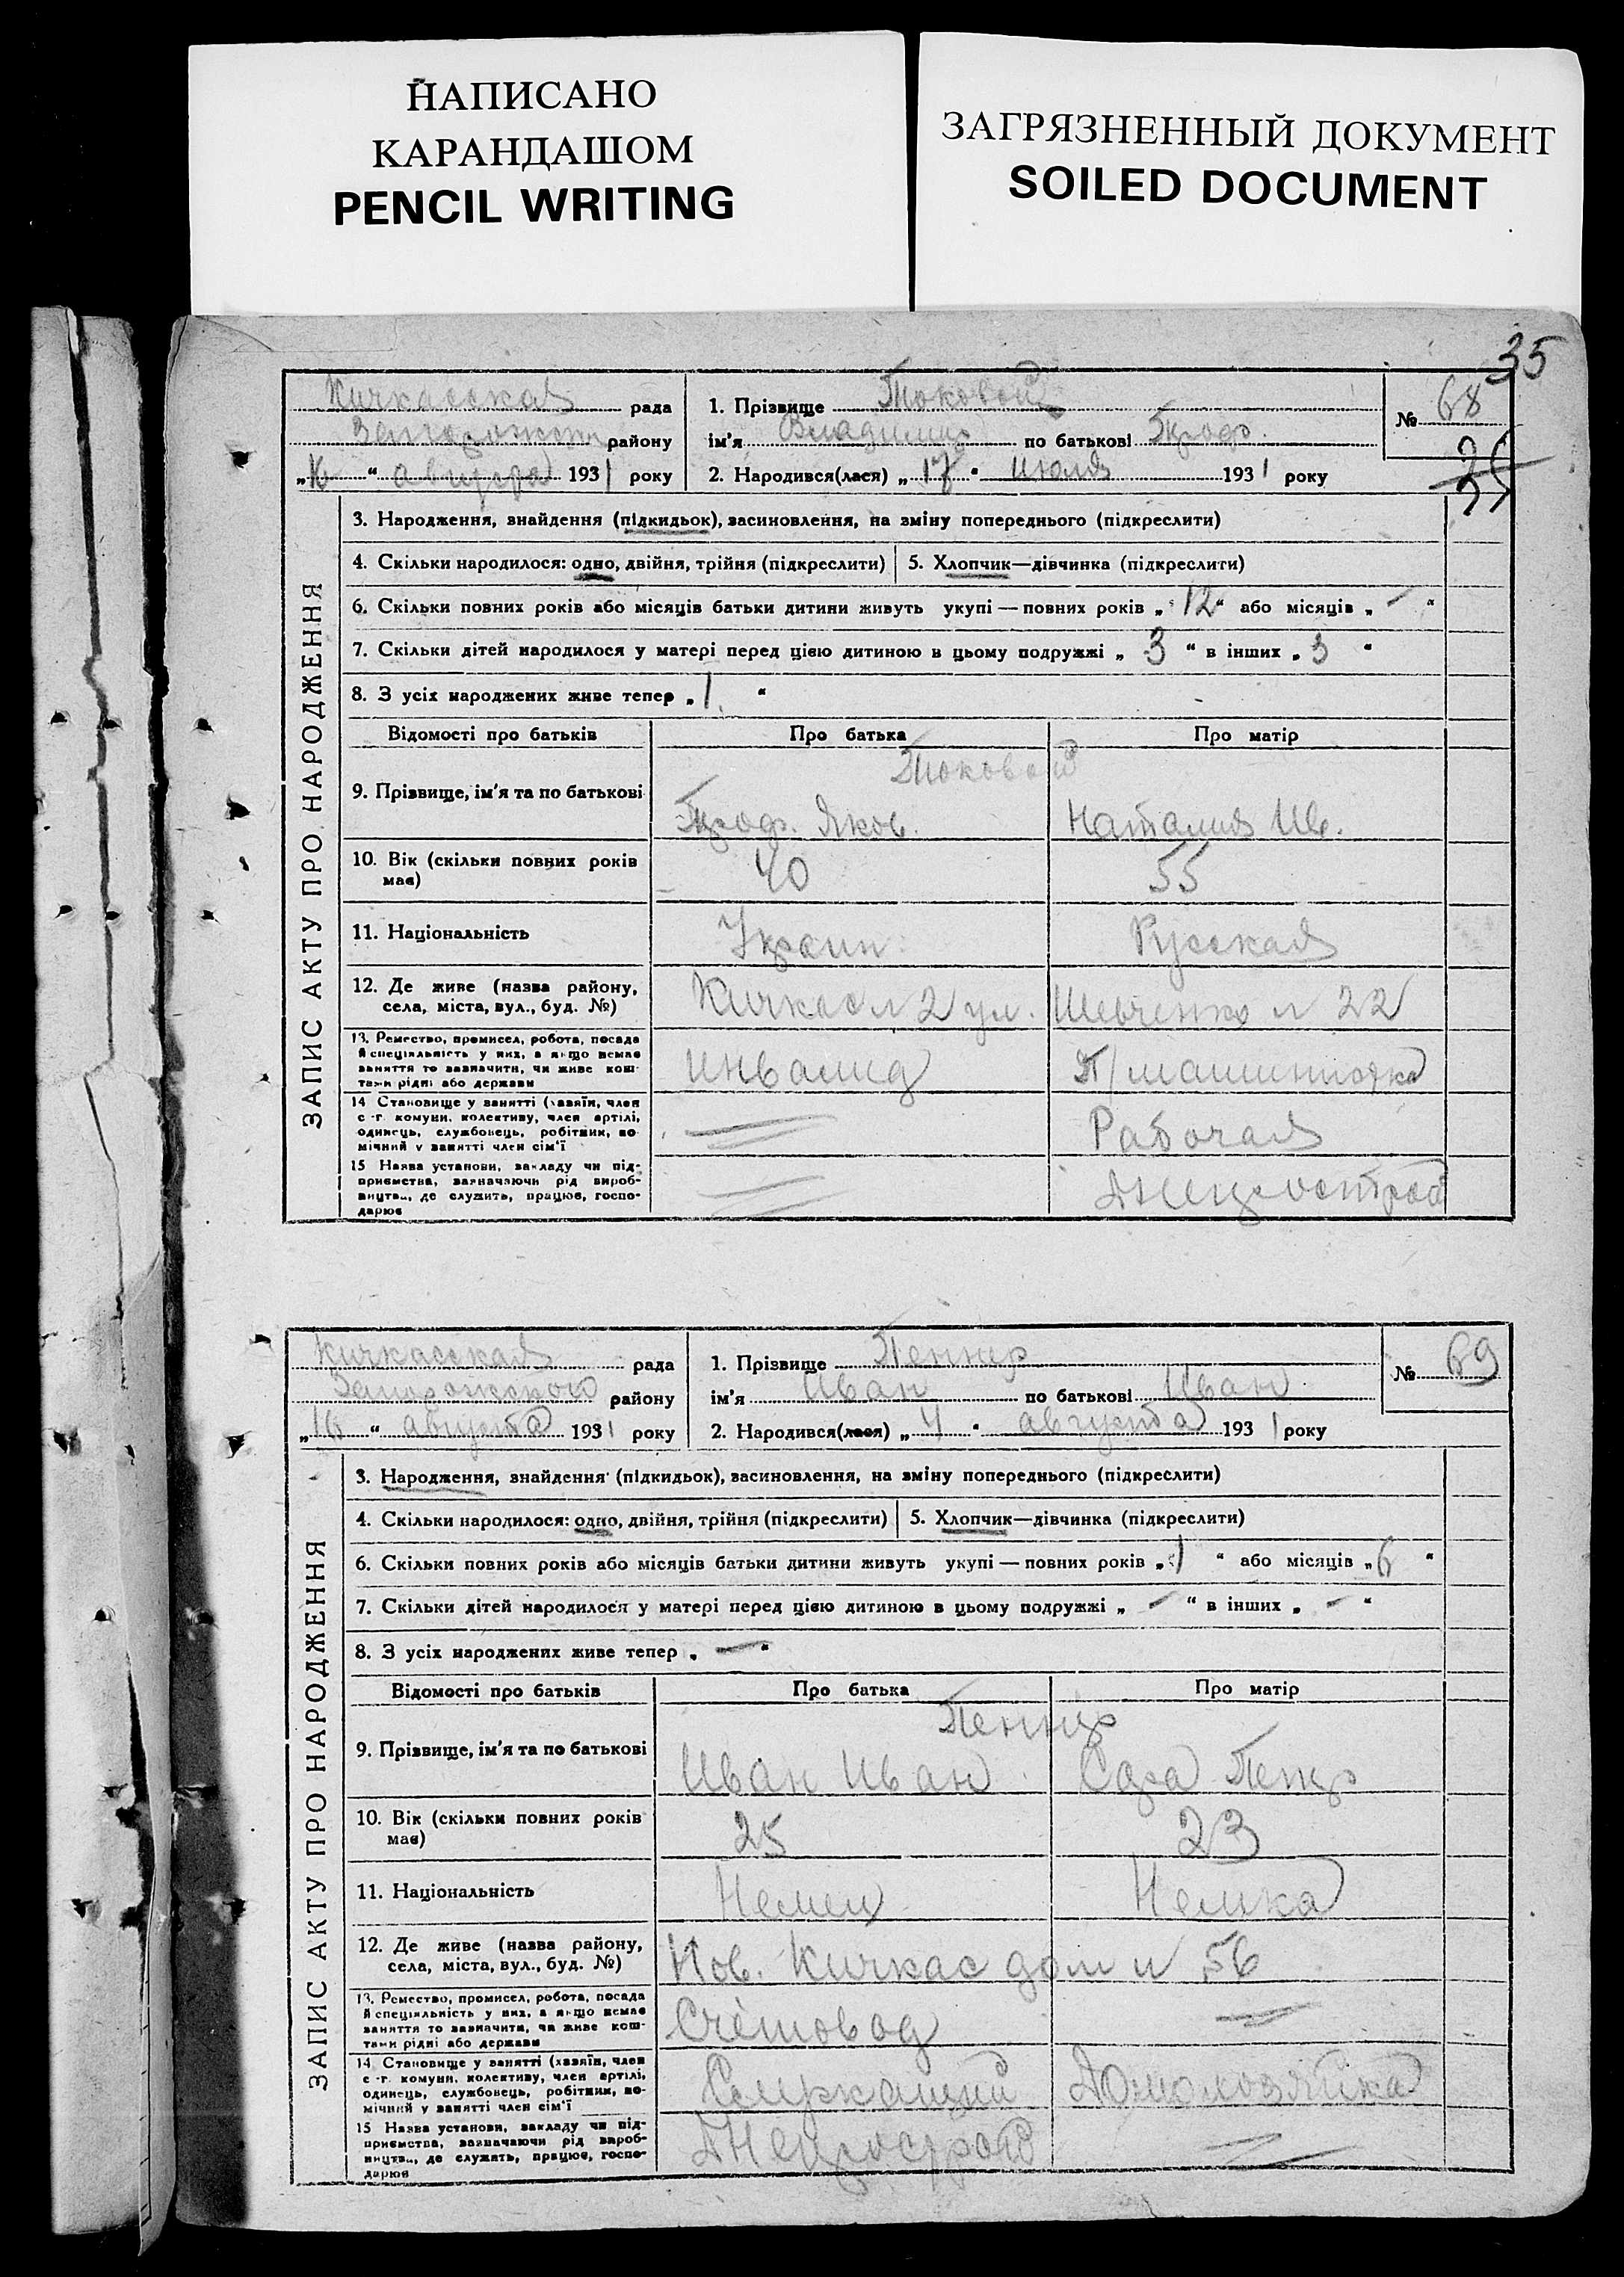 НАПИСАНО
КАРАНДАШОМ
PENCIL WRITING
ЗАГРЯЗНЕННЫЙ ДОКУМЕНТ
SOILED DOCUMENT
35
Кичкасская рада
району
„16“ августа 1931 року
1. Прізвище Токовой
ім'я Владимир по батькові Троф.
2. Народився(лася) „17“ июля 1931 року
№ 68
ЗАПИС АКТУ ПРО НАРОДЖЕННЯ
3. Народження, знайдення (підкидьок), засиновлення, на зміну попереднього (підкреслити)
4. Скільки народилося: одно, двійня, трійня (підкреслити) 5. Хлопчик—дівчинка (підкреслити)
6. Скільки повних років або місяців батьки дитини живуть укупі — повних років „12“ або місяців „-“
7. Скільки дітей народилося у матері перед цією дитиною в цьому подружжі „3“ в інших „3“
8. З усіх народжених живе тепер „1“
Відомості про батьків Про батька Про матір
Токовой
9. Прізвище, ім'я та по батькові Троф. Яков. Наталия Ив.
10. Вік (скільки повних років має) 40 55
11. Національність Украин. Русская
12. Де живе (назва району, села, міста, вул., буд. №) Кичкас л 2 ул. Шевченко н 22
13. Ремество, промисел, робота, посада й спеціяльність у них, а якщо немає заняття то зазначити, чи живе коштами рідні або держави инвалид
14 Становище у занятті (хазяїн, член с.-г. комуни, колективу, член артілі, одинець, службовець, робітник, помічний у занятті член сім'ї Рабочая
15 Назва установи, закладу чи підприємства, зазначаючи рід виробництва, де служить, працює, господарює Днепрострой
Кичкасская рада
Запорожского району
„16“ августа 1931 року
1. Прізвище Пеннер
ім'я Иван по батькові Иван
2. Народився(лася) „4“ августа 1931 року
№ 69
ЗАПИС АКТУ ПРО НАРОДЖЕННЯ
3. Народження, знайдення (підкидьок), засиновлення, на зміну попереднього (підкреслити)
4. Скільки народилося: одно, двійня, трійня (підкреслити) 5. Хлопчик—дівчинка (підкреслити)
6. Скільки повних років або місяців батьки дитини живуть укупі — повних років „1“ або місяців „6“
7. Скільки дітей народилося у матері перед цією дитиною в цьому подружжі „-“ в інших „-“
8. З усіх народжених живе тепер „-“
Відомості про батьків Про батька Про матір
Пеннер
9. Прізвище, ім'я та по батькові Иван Иван. Сара Петр
10. Вік (скільки повних років має) 25 23
11. Національність Немец Немка
12. Де живе (назва району, села, міста, вул., буд. №) Нов. Кичкас дом н 56
13. Ремество, промисел, робота, посада й спеціяльність у них, а якщо немає заняття то зазначити, чи живе коштами рідні або держави Счетовод
14 Становище у занятті (хазяїн, член с.-г. комуни, колективу, член артілі, одинець, службовець, робітник, помічний у занятті член сім'ї Служащий Домохозяйка
15 Назва установи, закладу чи підприємства, зазначаючи рід виробництва, де служить, працює, господарює Днепрострой